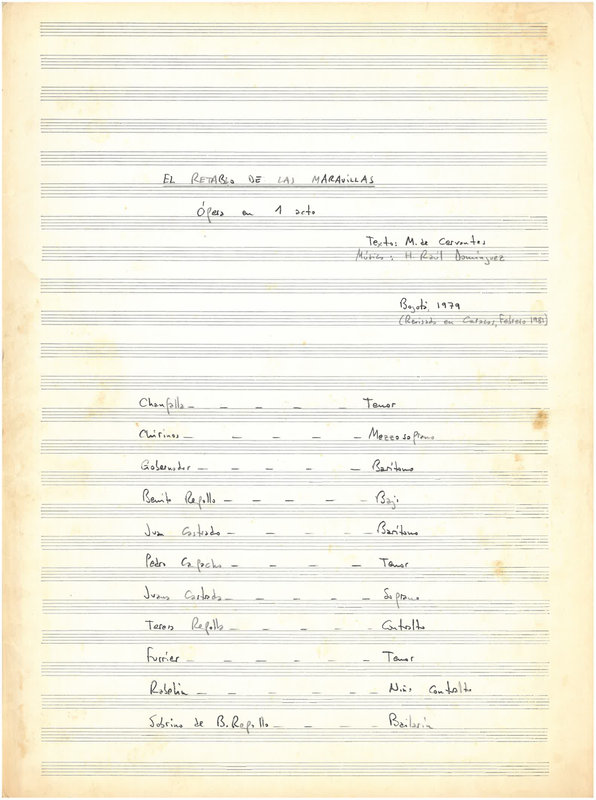 EL RETABLO DE LAS MARAVILLAS
Ópera en 1 acto
Texto: M. de Cervantes
Música: H. Raúl Domínguez
Bogotá, 1979
(Revisado en Caracas, Febrero 1981)
Chanfalla - - - - - Tenor
Chirinos - - - - - Mezzosoprano
Gobernador - - - - - Barítono
Benito Repollo - - - - - Bajo
Juan Castrado - - - - - Barítono
Pedro Capacho - - - - - Tenor
Juana Castrada - - - - - Soprano
Teresa Repolla - - - - - Contralto
Furrier - - - - - Tenor
Rabelín - - - - - Niño Contralto
Sobrino de B. Repollo - - - - Bailarín